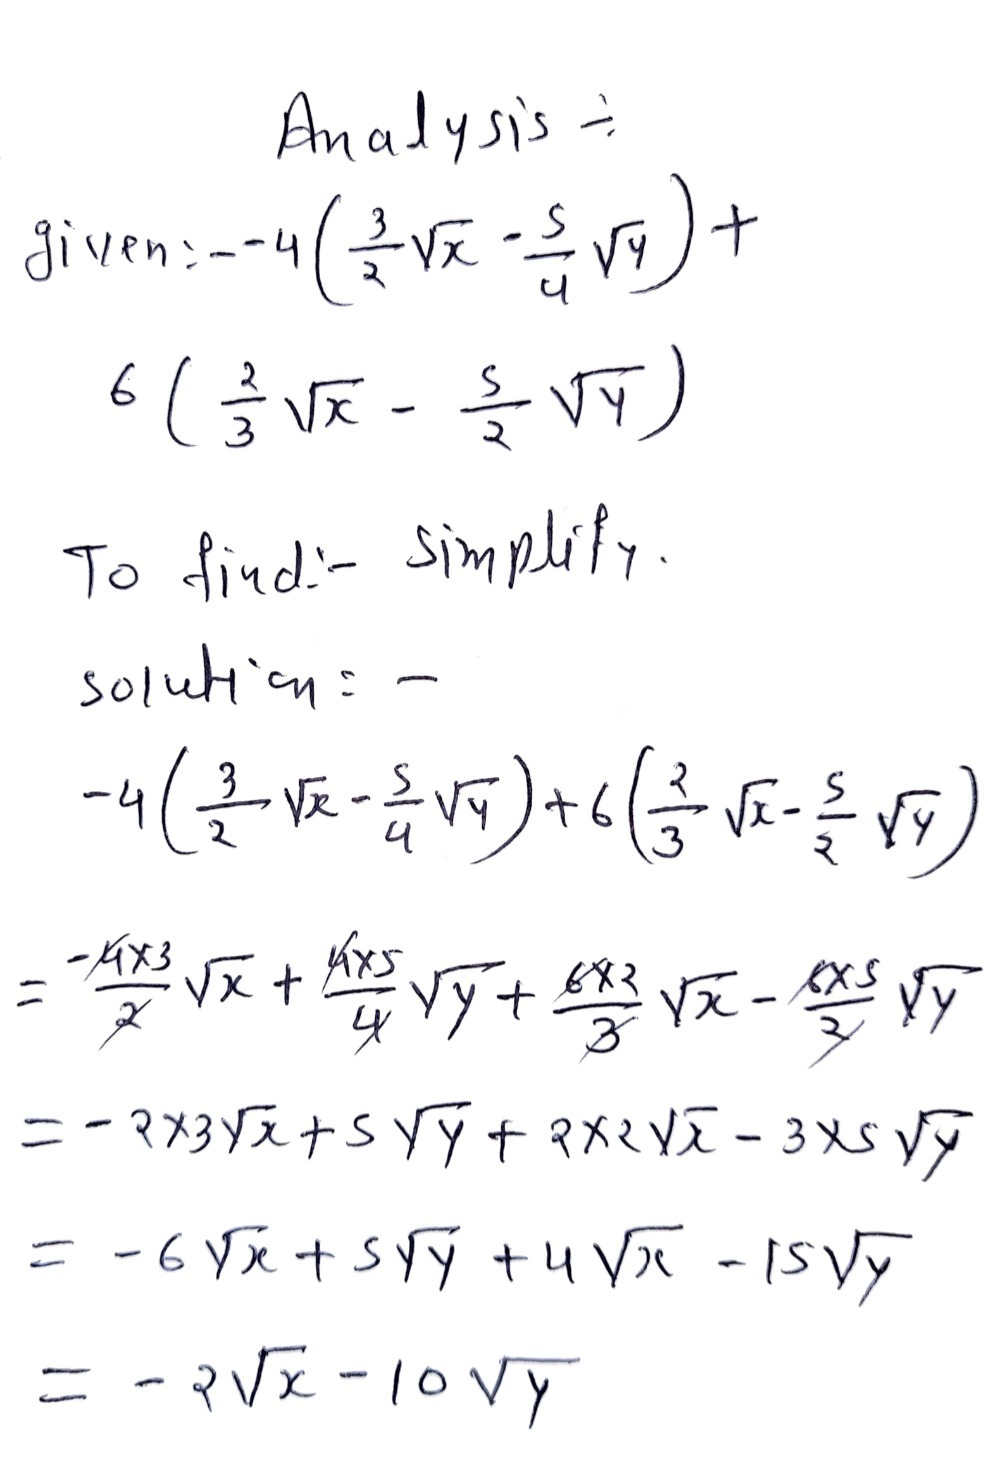 Analysis ÷
given:- -4(3/2 √x - 5/4 √y) +
6(2/3 √x - 5/2 √y)
To find:- simplify.
solution:-
-4(3/2 √x - 5/4 √y) + 6(2/3 √x - 5/2 √y)
= -4×3/2 √x + 4×5/4 √y + 6×2/3 √x - 6×5/2 √y
= -2×3√x + 5√y + 2×2√x - 3×5√y
= -6√x + 5√y + 4√x - 15√y
= -2√x - 10√y